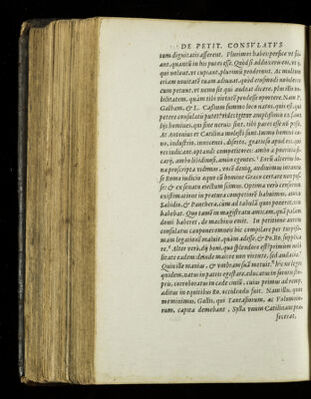 DE PETIT. CONSVLATVS
tum dignitatis afferent. Plurimos habes: perfice ut sci-
ant, quantũ in his putes esse. Quòd si adduxeris eos, ut ij,
qui uolunt, ut cupiant, plurimũ proderunt. Ac multum
etiam nouitatẽ tuam adiuuat, quòd eiusmodi nobiles te-
cum petunt, ut nemo sit qui audeat dicere, plus illis no-
bilitatem, quàm tibi uirtutẽ prodesse oportere. Nam P.
Galbam, & L. Cassium summo loco natos, quis est, qui
petere consulatũ putet? uides igitur amplissimis ex fami-
lijs homines, quòd sine neruis sint, tibi pares esse nõ posse.
At Antonius et Catilina molesti sunt. Immo homini na-
uo, industrio, innocenti, diserto, gratioso apud eos, qui
res iudicant, optandi competitores: ambo à pueritia si-
carij, ambo libidinosi, ambo egentes. Eorũ alterius bo-
na proscripta uidimus, uocẽ deniq; audiuimus iurantis
se Romæ iudicio æquo cũ homine Græco certare non pos-
se: & ex senatu eiectum scimus. Optima uerò censorum
existimatione in prætura competitorẽ habuimus, amico
Sabidio, & Panthera, cùm ad tabulã quos poneret, non
habebat. Quo tamẽ in magistratu amicam, quã palàm
domi haberet, de machinis emit. In petitione autem
consulatus caupones omneis
mam legationẽ maluit, quàm adesse, & Po. Ro. supplica-
re. Alter uerò, dij boni, quo splendore est? primùm nobi-
litate eadem
Quin
quidem. natus in patris egestate, educatus in
prijs, corroboratus in cæde ciuiũ, cuius primus ad remp.
aditus in equitibus Ro. occidendis fuit. Nam illis, quos
meminimus, Gallis, qui Tantasiorum, ac Volumnio-
rum, capita demebant, Sylla unum Catilinam præ-
fecerat,